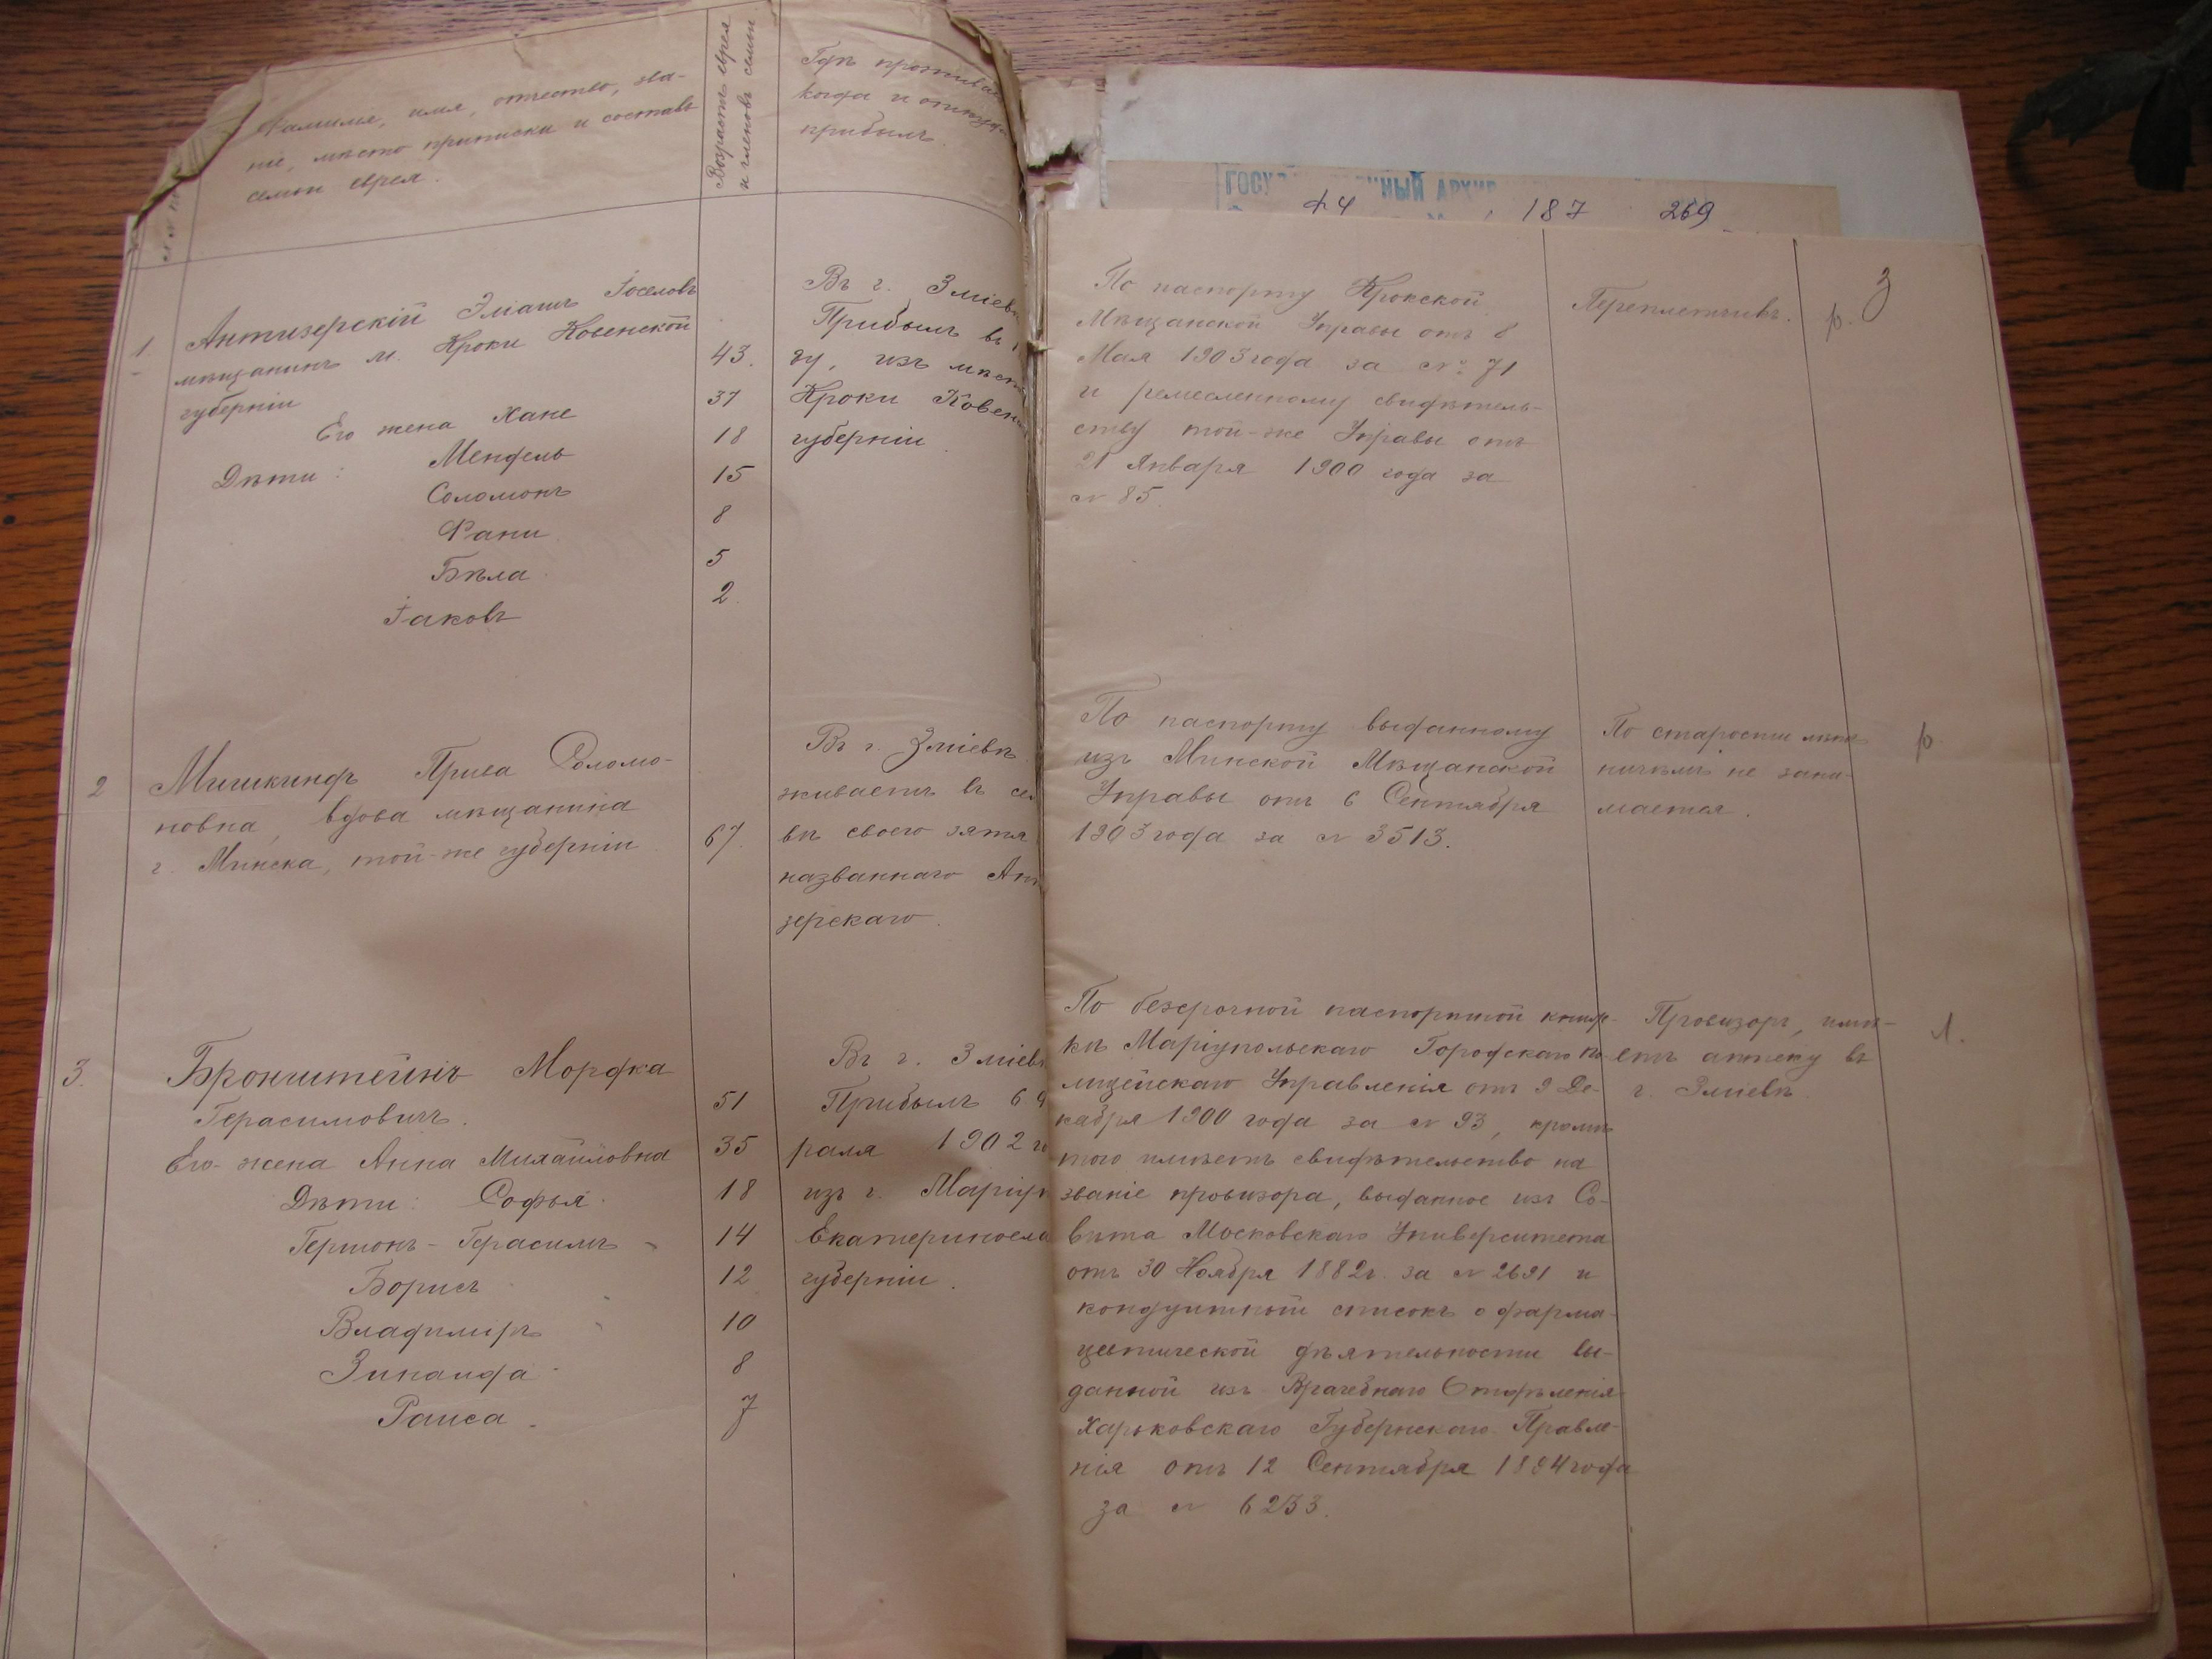 Фамилия, имя, отчество, зва-
ніе, мѣсто приписки и составъ
семьи еврея.
Возрастъ еврея
и членовъ семьи
Гдѣ прожива
когда и откуда
прибылъ
ГОСУ ННЫЙ АРХИВ
ф4 187 269
3
1. Антизерскій Эліашъ Іоселовъ
мѣщанинъ м. Кроки Ковенской
губерніи 43.
Его жена Хане 37
Дѣти: Мендель 18
Соломонъ 15
Фани 8
Бѣла 5
Іаковъ 2
Въ г. Зміевѣ
Прибылъ въ
ду, изъ мѣст
Кроки Ковен
губерніи
По паспорту Крокской
Мѣщанской Управы отъ 8
Мая 1903 года за № 71
и ремесленному свидѣтель-
ству той-же Управы отъ
21 Января 1900 года за
№ 85.
Переплетчикъ.
р.
2 Мишкиндъ Соломо-
новна, вдова мѣщанина
г. Минска, той-же губерніи 67.
Въ г. Зміевѣ
живаетъ въ се
вѣ своего зятя
названнаго Ан
зерскаго.
По паспорту выданному
изъ Минской Мѣщанской
Управы отъ 6 Сентября
1903 года за № 3513.
По старости лѣтъ
ничѣмъ не зани-
мается.
р.
3. Бронштейнъ Мордка
Герасимовичъ. 51
Его жена Анна Михайловна 35
Дѣти: Софья 18
Гершонъ-Герасимъ 14
Борисъ 12
Владиміръ 10
Зинаида 8
Раиса 7
Въ г. Зміевѣ
Прибылъ 6
раля 1902 го
изъ г. Маріуп
Екатериносла
губерніи.
По безсрочной паспортной книж-
кѣ Маріупольскаго Городскаго По
лицейскаго Управленія отъ 9 Де-
кабря 1900 года за № 93, кромѣ
того имѣетъ свидѣтельство на
званіе провизора, выданное изъ Со-
вѣта Московскаго Университета
отъ 30 Ноября 1882 г. за № 2691 и
кондуитной списокъ о фарма-
цевтической дѣятельности вы-
данной изъ Врачебнаго Отдѣленія
Харьковскаго Губернскаго Правле-
нія отъ 12 Сентября 1894 года
за № 6233.
Провизоръ, имѣ-
етъ аптеку въ
г. Зміевѣ
л.